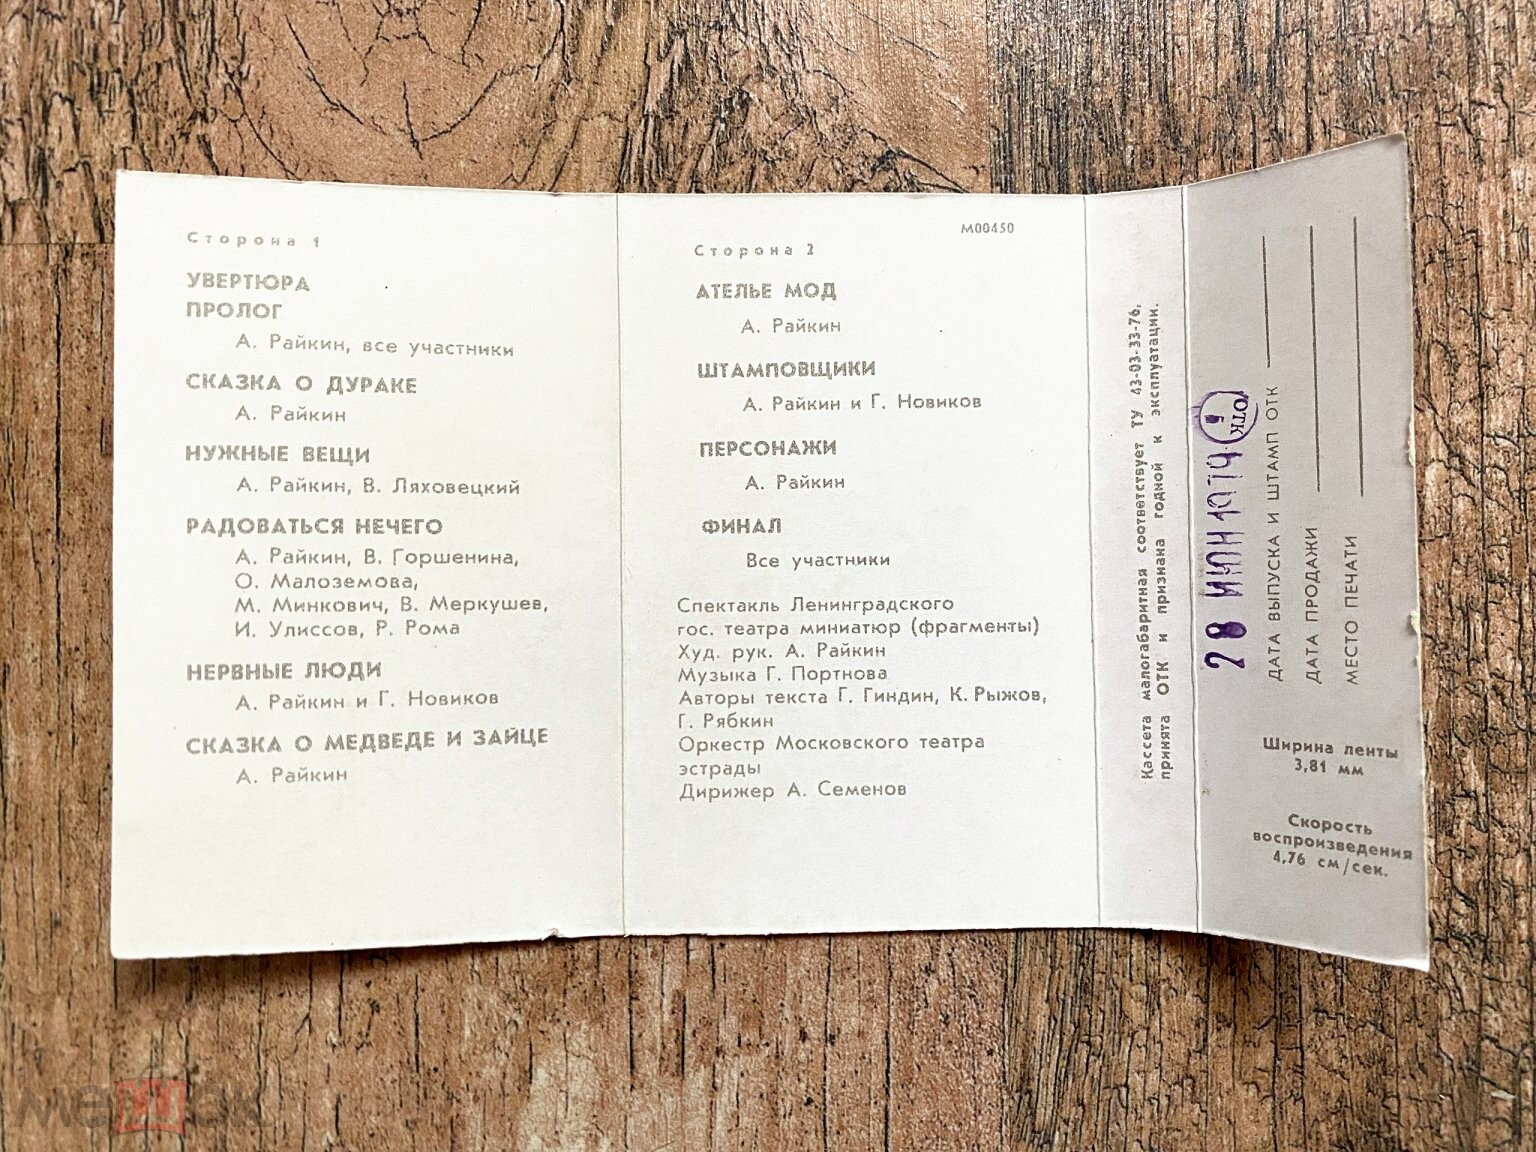 Сторона 1
УВЕРТЮРА
ПРОЛОГ
А. Райкин, все участники
СКАЗКА О ДУРАКЕ
А. Райкин
НУЖНЫЕ ВЕЩИ
А. Райкин, В. Ляховецкий
РАДОВАТЬСЯ НЕЧЕГО
А. Райкин, В. Горшенина,
О. Малоземова,
М. Минкович, В. Меркушев,
И. Улиссов, Р. Рома
НЕРВНЫЕ ЛЮДИ
А. Райкин и Г. Новиков
СКАЗКА О МЕДВЕДЕ И ЗАЙЦЕ
А. Райкин
М00450
Сторона 2
АТЕЛЬЕ МОД
А. Райкин
ШТАМПОВЩИКИ
А. Райкин и Г. Новиков
ПЕРСОНАЖИ
А. Райкин
ФИНАЛ
Все участники
Спектакль Ленинградского
гос. театра миниатюр (фрагменты)
Худ. рук. А. Райкин
Музыка Г. Портнова
Авторы текста Г. Гиндин, К. Рыжов,
Г. Рябкин
Оркестр Московского театра
эстрады
Дирижер А. Семенов
Кассета малогабаритная соответствует ТУ 43-03-33-76,
принята ОТК и признана годной к эксплуатации.
28 ИЮН 1979
ОТК
ДАТА ВЫПУСКА И ШТАМП ОТК
ДАТА ПРОДАЖИ
МЕСТО ПЕЧАТИ
Ширина ленты
3,81 мм
Скорость
воспроизведения
4,76 см/сек.
мешок